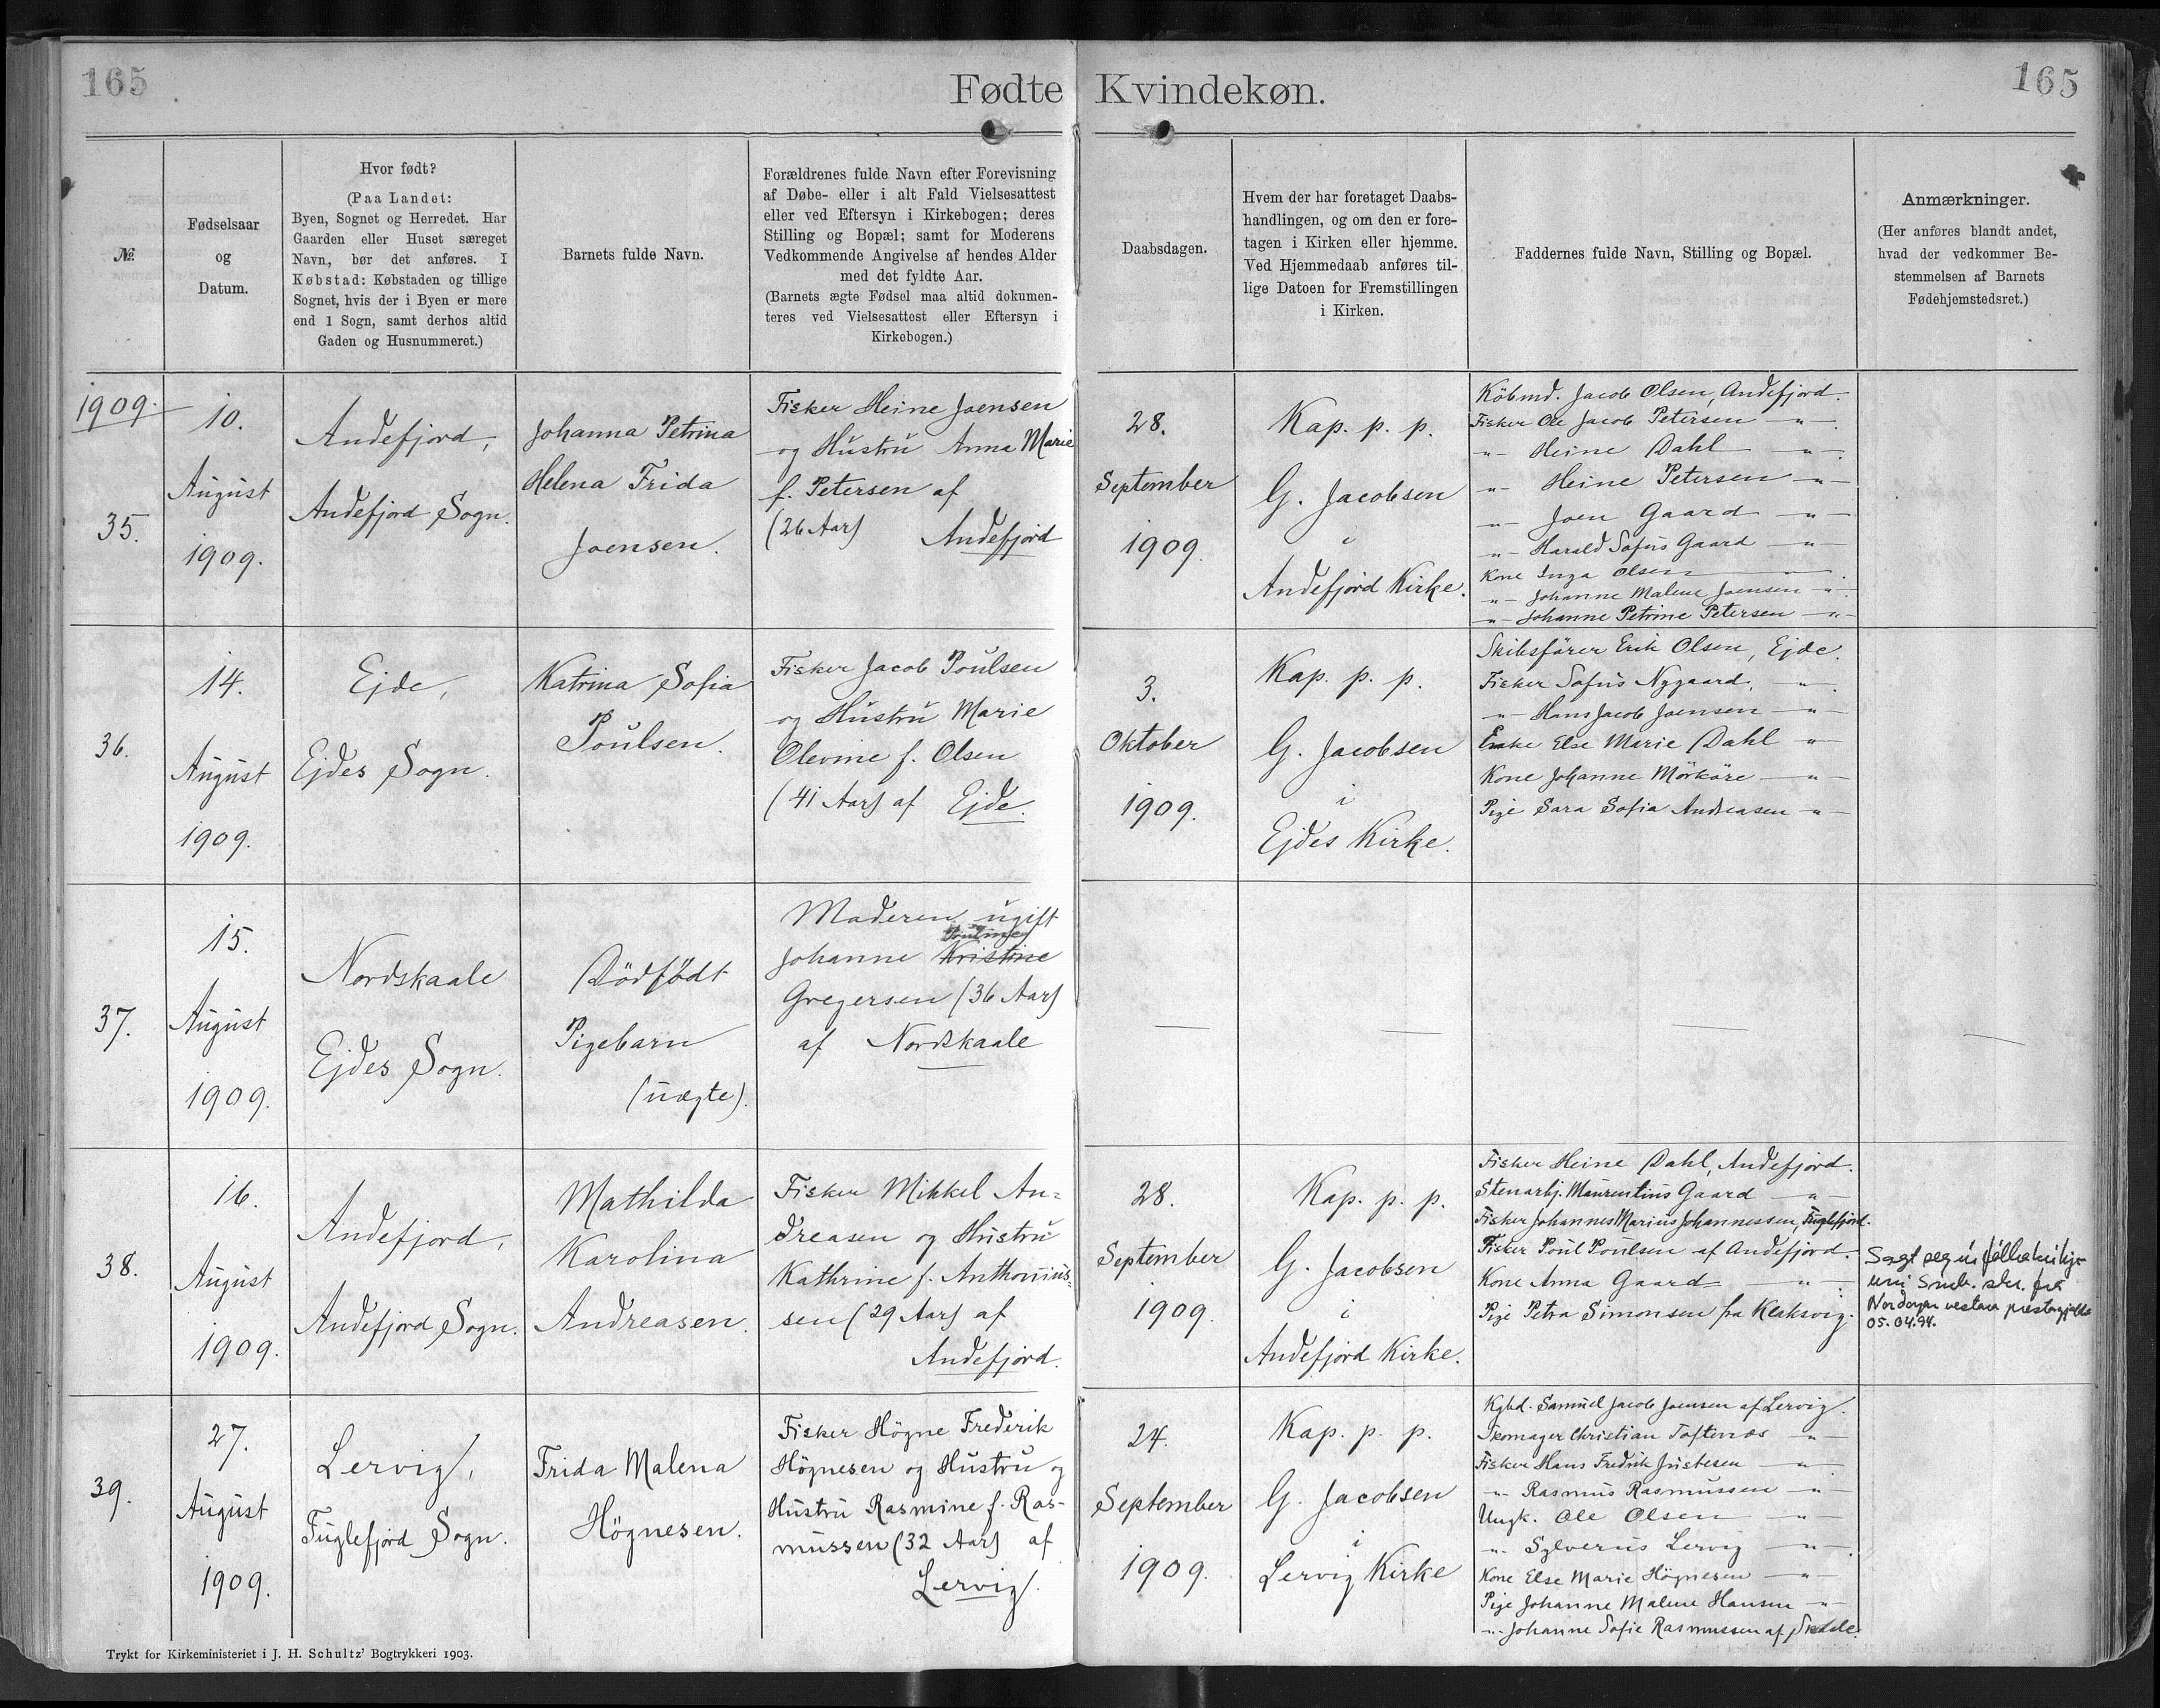 165
Fødte Kvindekøn.
165
№
Fødselsaar
og
Datum.
Hvor født?
(Paa Landet:
Byen, Sognet og Herredet. Har
Gaarden eller Huset særeget
Navn, bør det anføres. I
Købstad: Købstaden og tillige
Sognet, hvis der i Byen er mere
end 1 Sogn, samt derhos altid
Gaden og Husnummeret.)
Barnets fulde Navn.
Forældrenes fulde Navn efter Forevisning
af Døbe- eller i alt Fald Vielsesattest
eller ved Eftersyn i Kirkebogen; deres
Stilling og Bopæl; samt for Moderens
Vedkommende Angivelse af hendes Alder
med det fyldte Aar.
(Barnets ægte Fødsel maa altid dokumen-
teres ved Vielsesattest eller Eftersyn i
Kirkebogen.)
Daabsdagen.
Hvem der har foretaget Daabs-
handlingen, og om den er fore-
tagen i Kirken eller hjemme.
Ved Hjemmedaab anføres til-
lige Datoen for Fremstillingen
i Kirken.
Faddernes fulde Navn, Stilling og Bopæl.
Anmærkninger.
(Her anføres blandt andet,
hvad der vedkommer Be-
stemmelsen af Barnets
Fødehjemstedsret.)
1909.
35.
10.
August
1909.
Andefjord,
Andefjord Sogn.
Johanna Petrina
Helena Frida
Joensen.
Fisker Heine Joensen
og Hustru Anna Marie
f. Petersen af
(26 Aar) Andefjord
28.
September
1909.
Kap. p. p.
G. Jacobsen
i
Andefjord Kirke.
Köbmd. Jacob Olsen, Andefjord.
Fisker Ole Jacob Petersen —"—.
—"— Heine Dahl —"—.
—"— Heine Petersen —"—
—"— Joen Gaard —"—
—"— Harald Sofus Gaard —"—
Kone Inga Olsen —"—.
—"— Johanne Malene Joensen —"—
—"— Johanne Petrine Petersen —"—
36.
14.
August
1909.
Ejde,
Ejdes Sogn.
Katrina Sofia
Poulsen.
Fisker Jacob Poulsen
og Hustru Marie
Olevine f. Olsen
(41 Aar) af Ejde.
3.
Oktober
1909.
Kap. p. p.
G. Jacobsen
i
Ejdes Kirke.
Skibsfører Erik Olsen, Ejde.
Fisker Sofus Nygaard, —"—.
—"— Hans Jacob Joensen —"—
Enke Else Marie Dahl —"—
Kone Johanne Mörköre —"—
Pige Sara Sofia Andreasen —"—
37.
15.
August
1909.
Nordskaale
Ejdes Sogn.
Dödfödt
Pigebarn
(uægte).
Moderen ugift
Pouline
Johanne Kristine
Gregersen (36 Aar)
af Nordskaale
38.
16.
August
1909.
Andefjord,
Andefjord Sogn.
Mathilda
Karolina
Andreasen.
Fisker Mikkel An=
dreasen og Hustru
Kathrine f. Anthonius=
sen (29 Aar) af
Andefjord.
28.
September
1909.
Kap. p. p.
G. Jacobsen
i
Andefjord Kirke.
Fisker Heine Dahl, Andefjord.
Stenarbj. Maurentius Gaard —"—
Fisker Johannes Marius Johannessen, Fuglefjord.
Fisker Poul Poulsen af Andefjord.
Kone Anna Gaard —"—
Pige Petra Simonsen fra Klaksvig.
Sagt seg úr fólkakirkju-
uni
Nordoya vestara prestagjaldi
05.04.94.
39.
27.
August
1909.
Lervig,
Fuglefjord Sogn.
Frida Malena
Högnesen.
Fisker Högne Frederik
Högnesen og Hustru og
Hustru Rasmine f. Ras-
mussen (32 Aar) af
Lervig.
24.
September
1909.
Kap. p. p.
G. Jacobsen
i
Lervig Kirke
Kgbd. Samuel Jacob Joensen af Lervig.
Skomager Christian Toftenæs —"—
Fisker Hans Fredrik Justesen —"—.
—"— Rasmus Rasmussen —"—
Ungk. Ole Olsen —"—
—"— Sylverius Lervig —"—.
Kone Else Marie Högnesen —"—
Pige Johanne Malene Hansen —"—
—"— Johanne Sofie Rasmussen af Skaale.
Trykt for Kirkeministeriet i J. H. Schultz' Bogtrykkeri 1903.